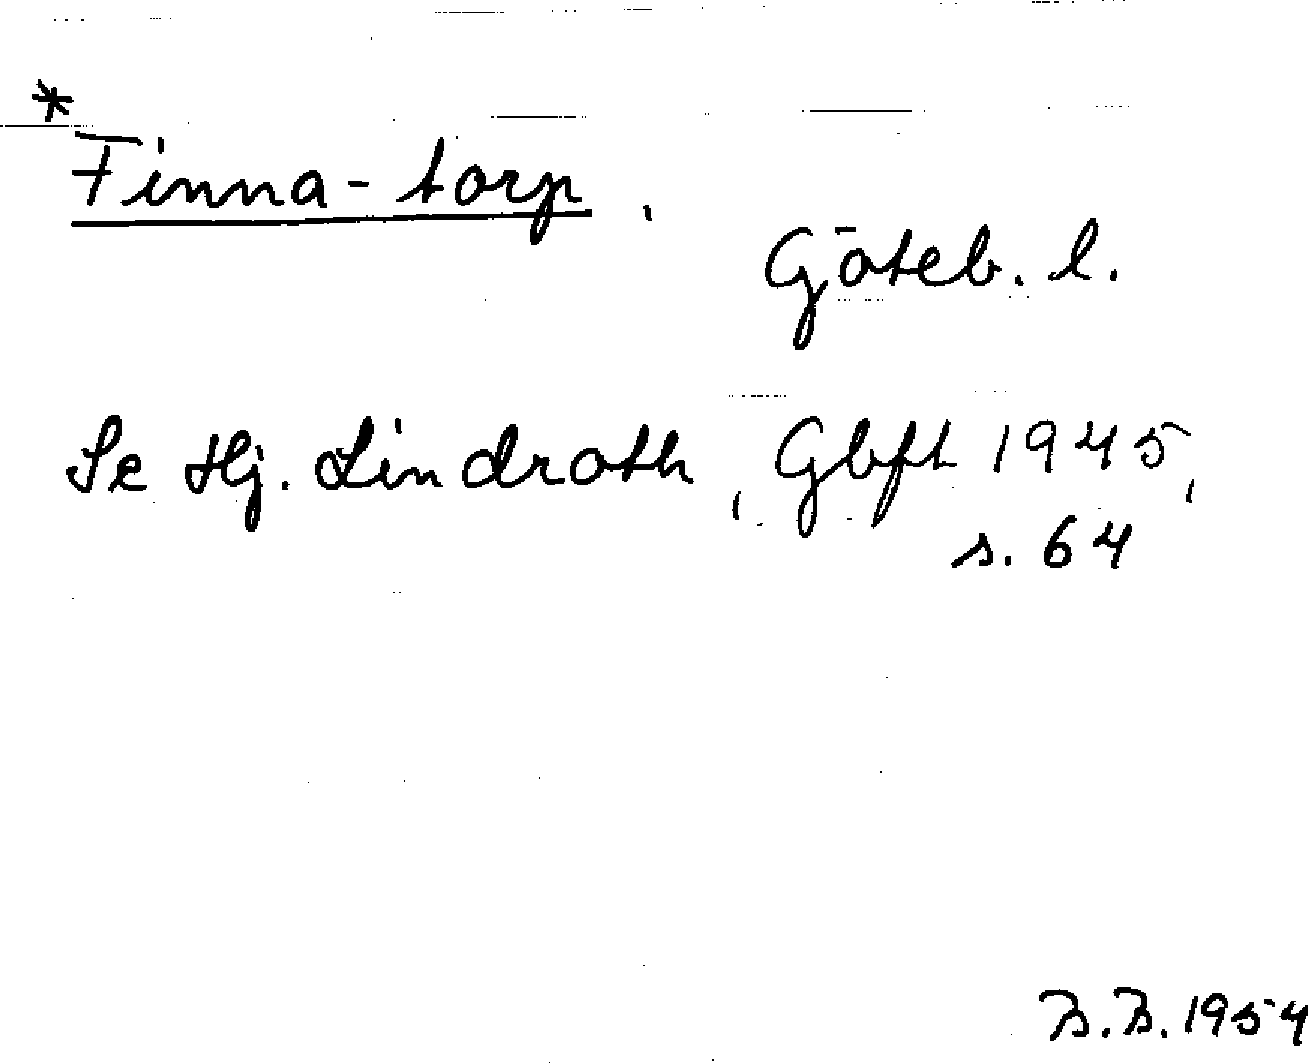 *
Finna-torp,
Göteb. l.
Se Hj. Lindroth, Gbft 1945,
s. 64
B.B. 1954